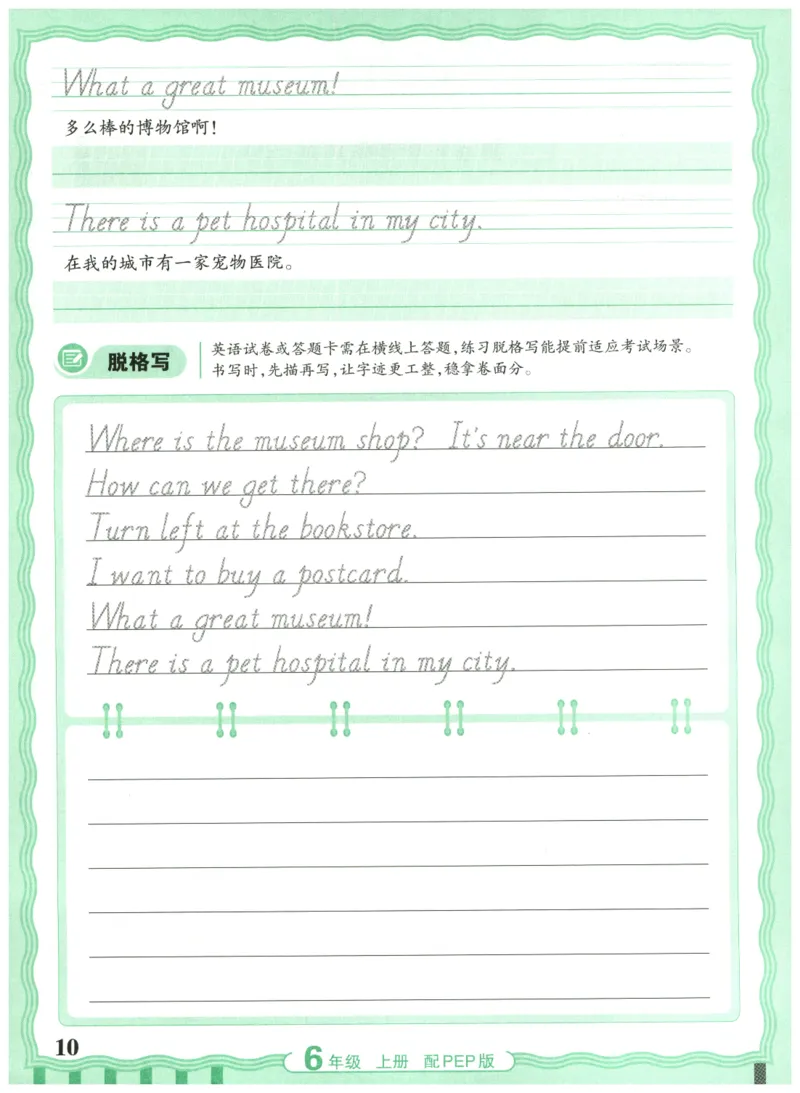 What a great museum!
多么棒的博物馆啊!
There is a pet hospital in my city.
在我的城市有一家宠物医院。
脱格写
英语试卷或答题卡需在横线上答题,练习脱格写能提前适应考试场景。
书写时,先描再写,让字迹更工整,稳拿卷面分。
Where is the museum shop? It's near the door.
How can we get there?
Turn left at the bookstore.
I want to buy a postcard.
What a great museum!
There is a pet hospital in my city.
10
6年级 上册 配PEP版